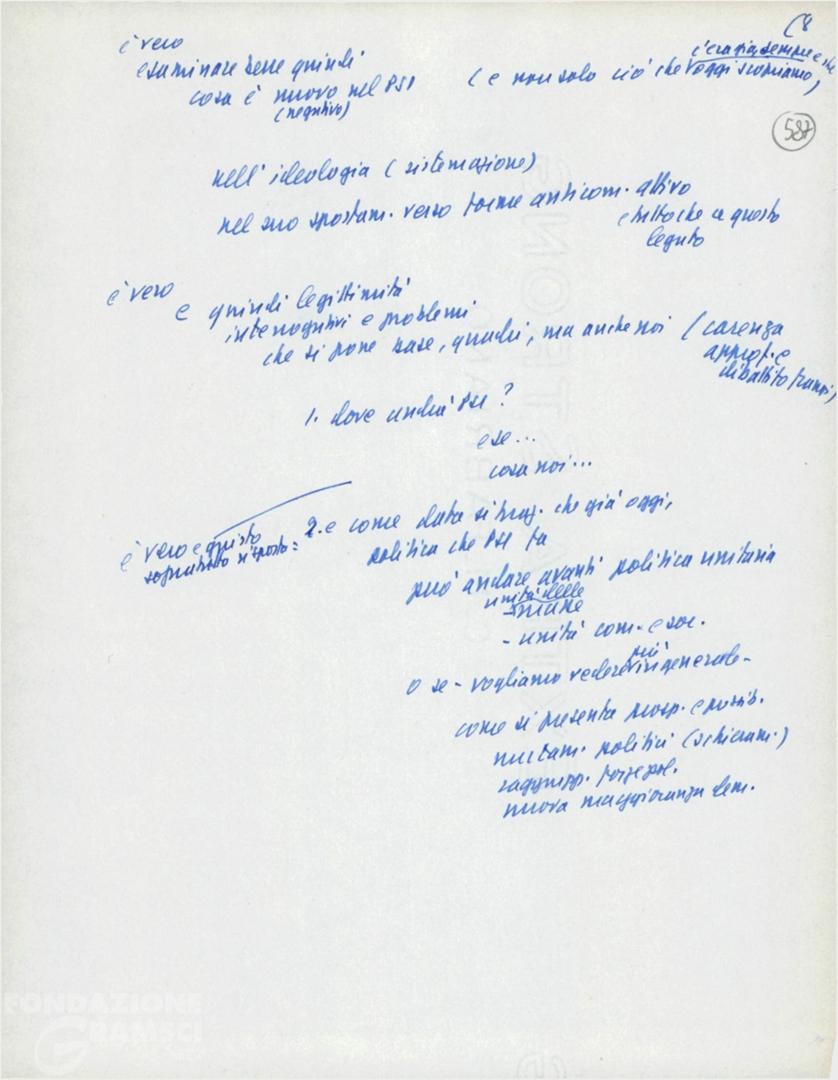 (8
è vero
esaminare bene quindi
cosa è nuovo nel PSI (e non solo ciò che oggi scopriamo)
c'era già sempre e che
(negativo)
587
nell'ideologia (sistemazione)
nel suo spostam. verso forme anticom. attivo
e tutto che a questo
legato
è vero
e quindi legittimità
interrogativi e problemi
che si pone base, quadri, ma anche noi (carenza
approf. e
dibattito
1. dove andrà PSI?
e se...
cosa noi...
è vero e questo
soprattutto risposto:
2. e come data situaz. che già oggi,
politica che PSI fa
può andare avanti politica unitaria
unità delle
- unità com. e soc.
o se - vogliamo vedere più in generale -
come si presenta prosp. e possib.
mutam. politici (schieram.)
raggrupp. forze pol.
nuova maggioranza dem.
FONDAZIONE
GRAMSCI